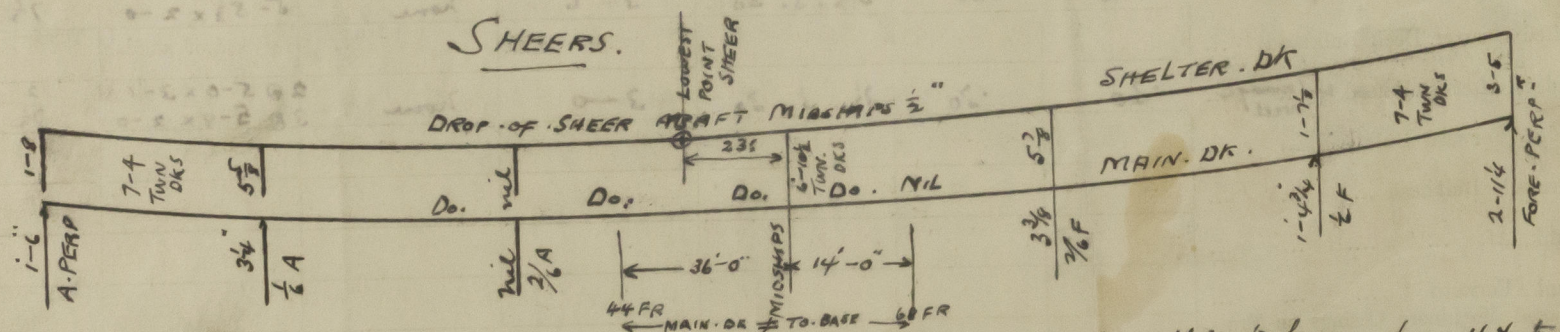 SHEERS.
LOWEST
POINT
SHEER
SHELTER. DK
DROP. OF. SHEER ABAFT MIDSHIPS ½"
1-8
7-4
TWN
DKS
5⅝
nil
6-10½
TWN.
DKS
5⅞
1-7½
7-4
TWN
DKS
3-5
MAIN. DK.
Do.
Do.
Do.
Do. NIL
1-6"
A. PERP
3¼"
⅙ A
nil
2/6 A
36'-0"
MIDSHIPS
14'-0"
3⅜
2/6 F
1-4¾"
⅙ F
2-11¼
FORE. PERP
44 FR
MAIN. DK TO. BASE